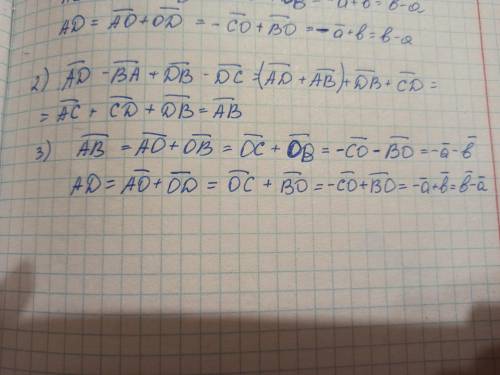 = -a+b = b-a
AD = A͞O + O͞D = - C͞O + B͞O = -a͞+b = b-a
2) A͞D - B͞A + D͞B - D͞C = (A͞D + A͞B) + D͞B + C͞D =
= A͞C + C͞D + D͞B = A͞B
3) A͞B = A͞O + O͞B = O͞C + O͞B = -C͞O - B͞O = -a͞ - b͞
AD = A͞O + O͞D = O͞C + B͞O = -C͞O + B͞O = -a͞+b͞ = b͞-a͞